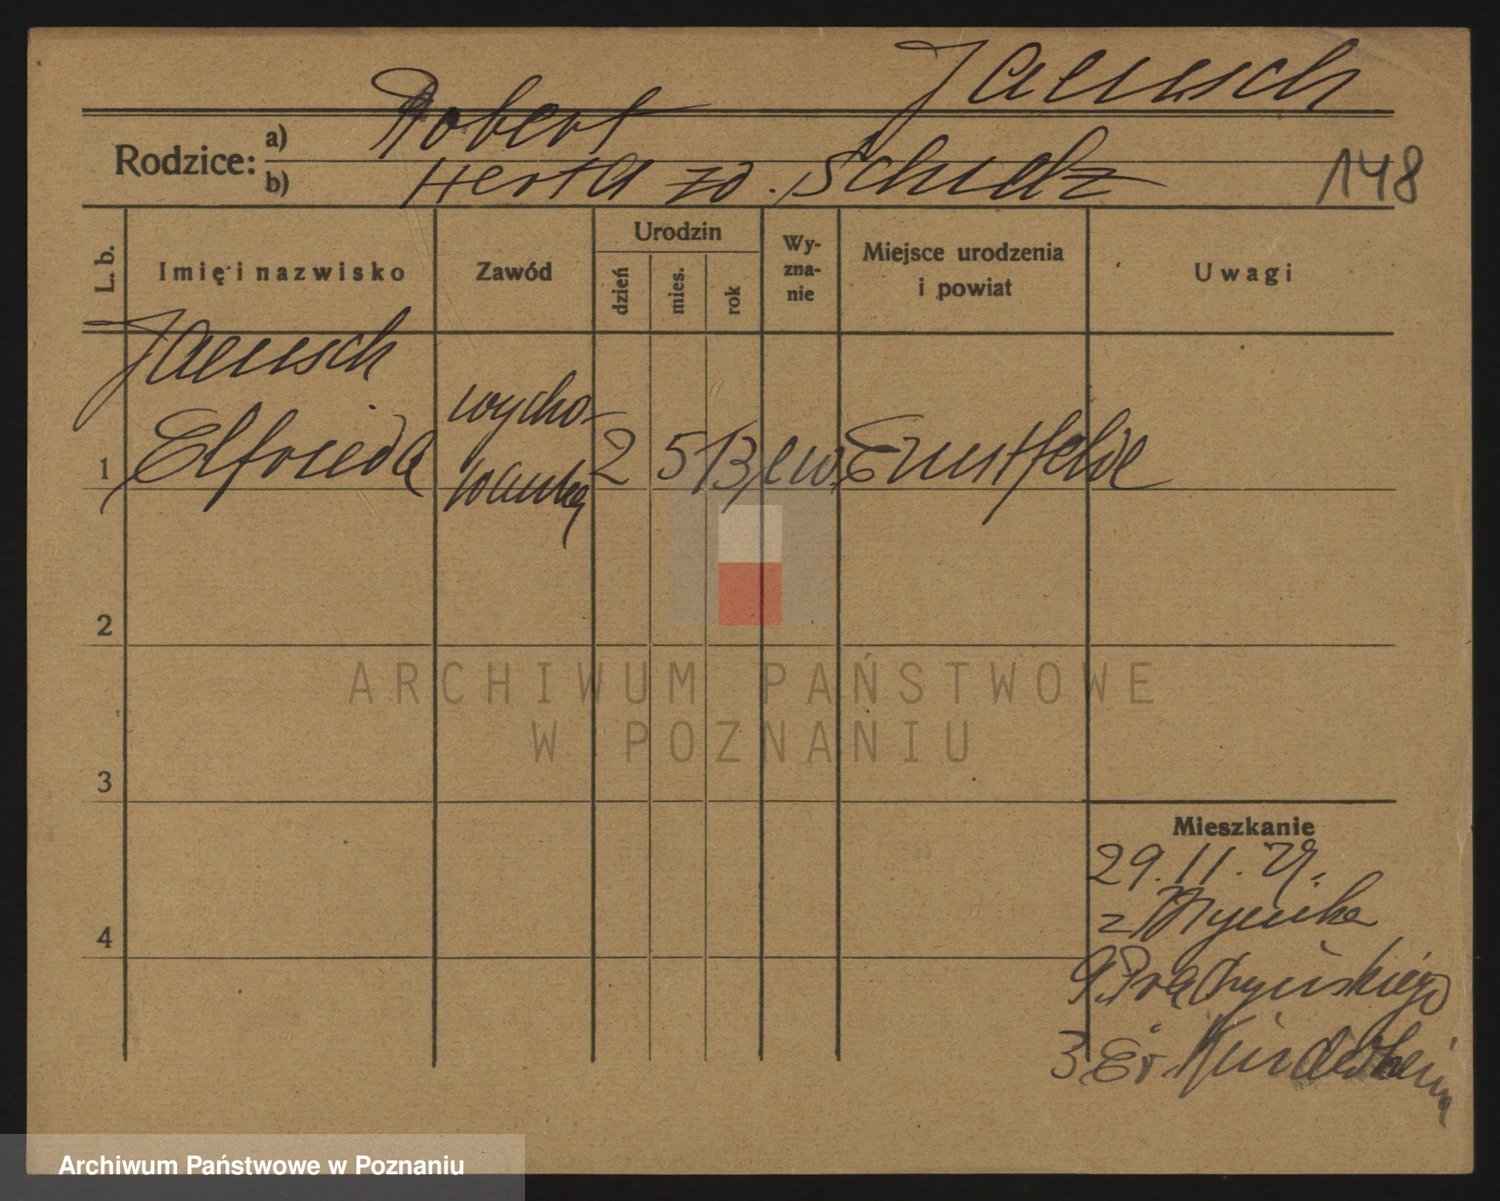 Jaensch
Rodzice: a) Robert
b) Herta zd. Schulz
148
L. b. Imię i nazwisko Zawód Urodzin dzień mies. rok Wy-zna-nie Miejsce urodzenia i powiat Uwagi
Jaensch
1 Elfrieda wycho-wanka 2 5 13 ew. Ernstfelde
2
3
4
Mieszkanie
29.11.
z
9. Prądzyńskiego
3 Ev. Kinderheim
ARCHIWUM PAŃSTWOWE
W POZNANIU
Archiwum Państwowe w Poznaniu